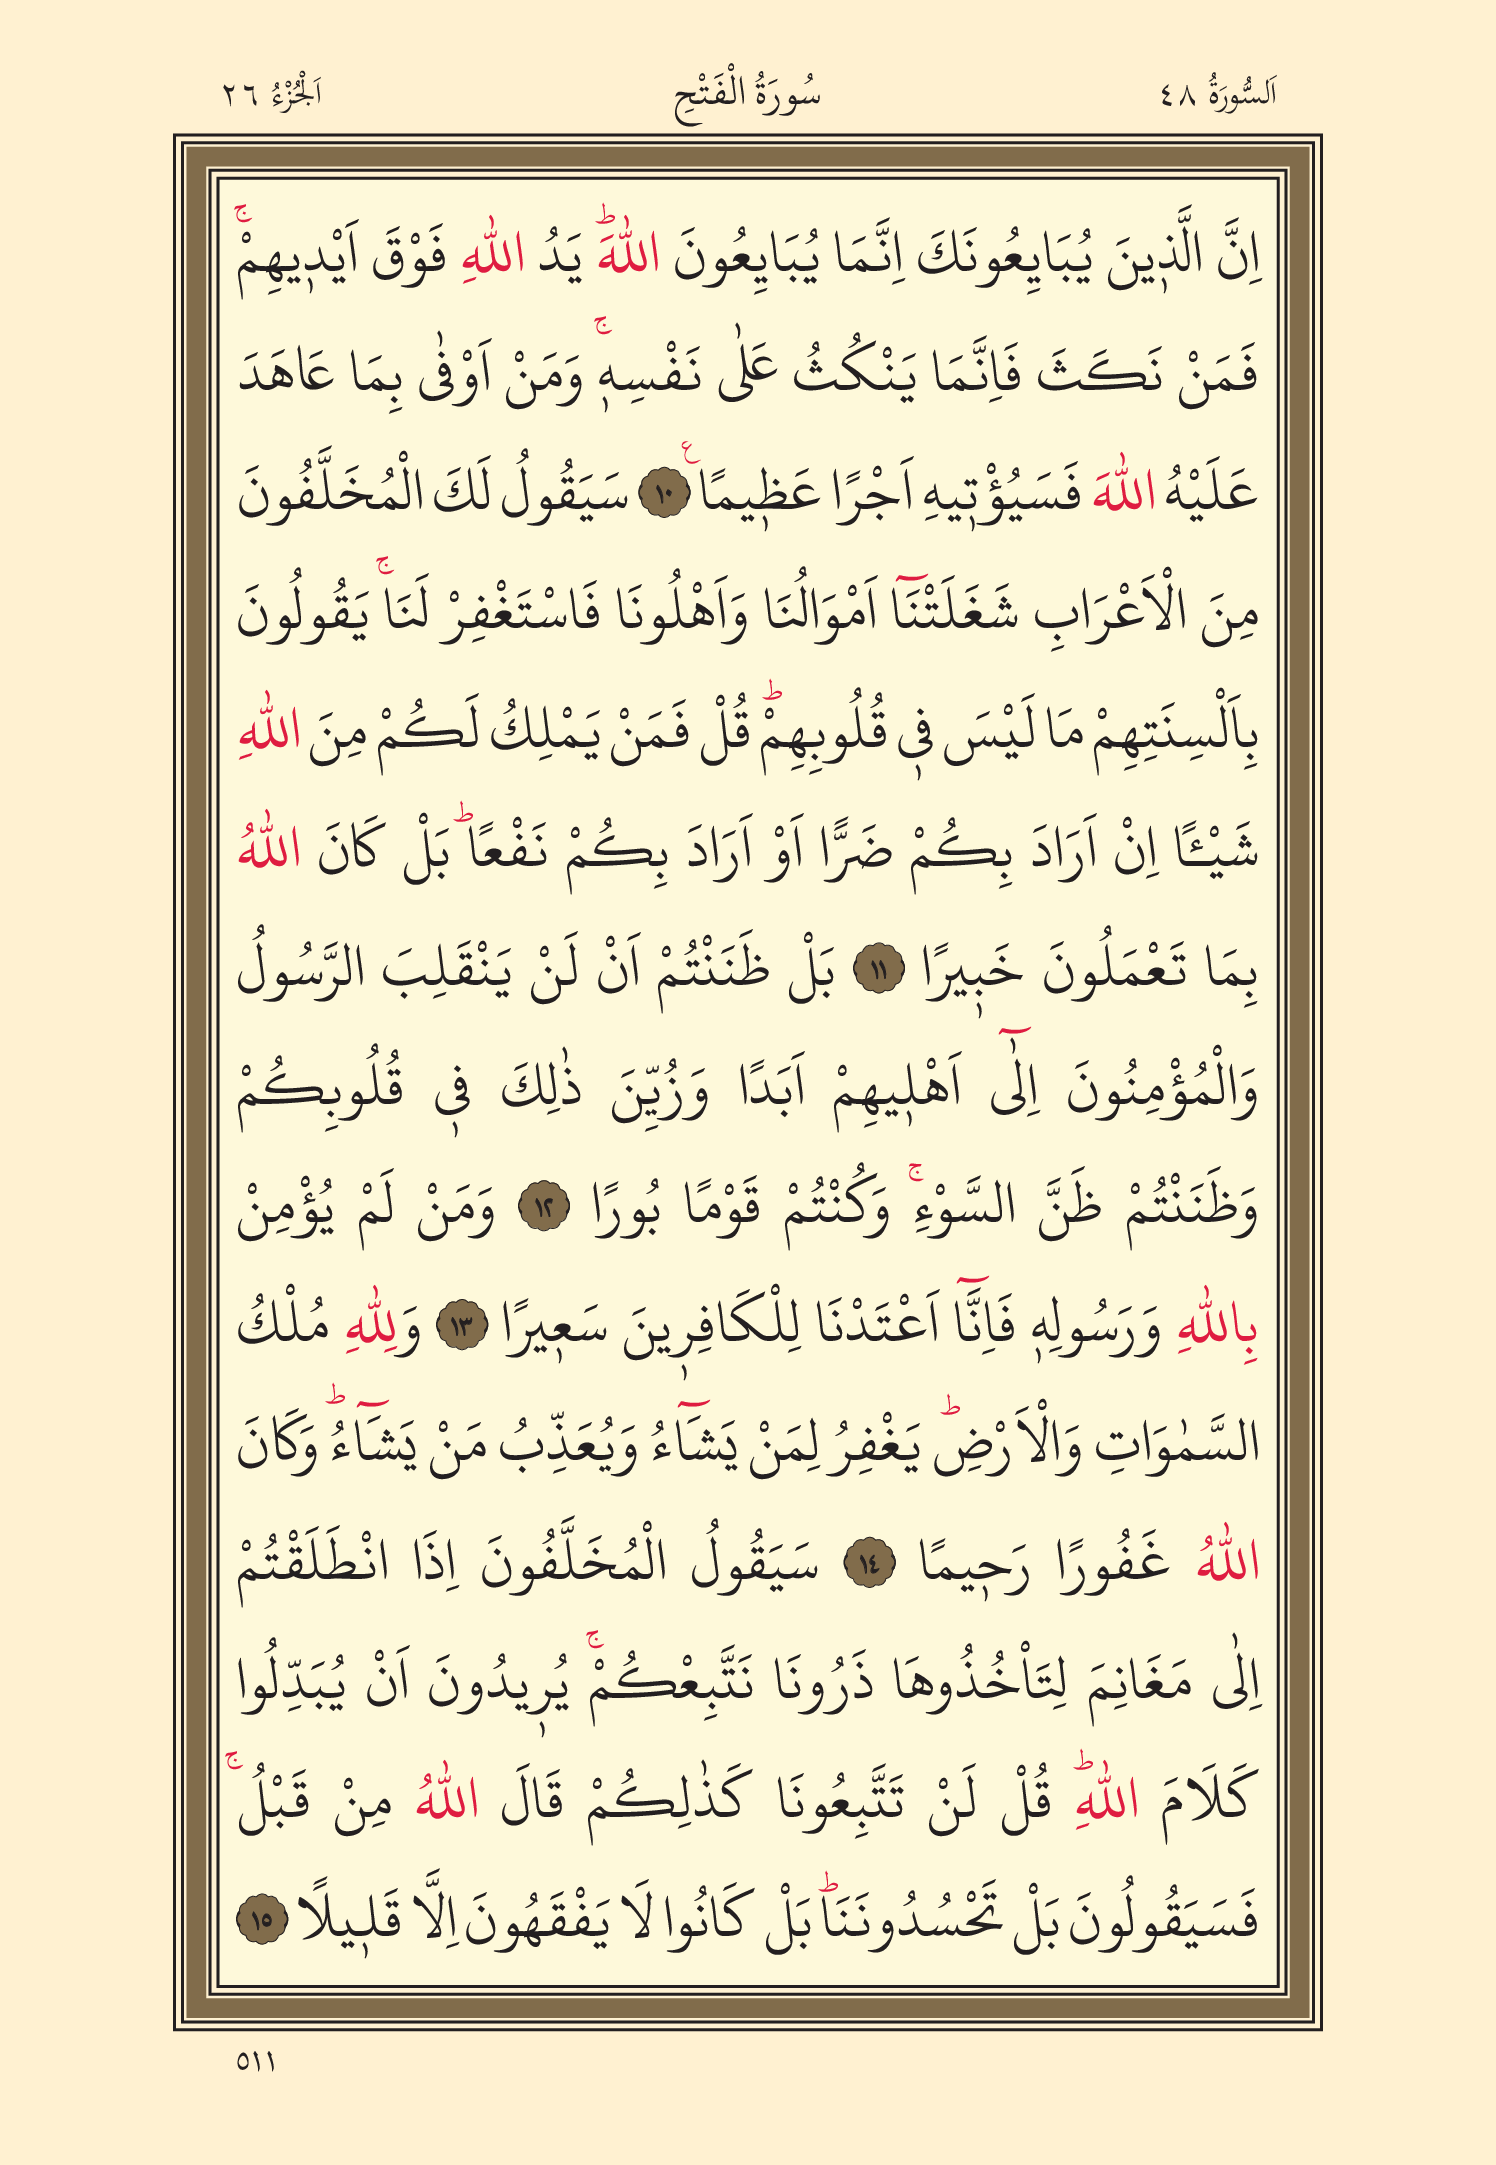 اَلسُّورَةُ ٤٨ سُورَةُ الْفَتْحِ اَلْجُزْءُ ٢٦
اِنَّ الَّذ۪ينَ يُبَايِعُونَكَ اِنَّمَا يُبَايِعُونَ اللّٰهَۜ يَدُ اللّٰهِ فَوْقَ اَيْد۪يهِمْۚ
فَمَنْ نَكَثَ فَاِنَّمَا يَنْكُثُ عَلٰى نَفْسِه۪ۚ وَمَنْ اَوْفٰى بِمَا عَاهَدَ
عَلَيْهُ اللّٰهَ فَسَيُؤْت۪يهِ اَجْرًا عَظ۪يمًا۟ ﴿١٠﴾ سَيَقُولُ لَكَ الْمُخَلَّفُونَ
مِنَ الْاَعْرَابِ شَغَلَتْنَٓا اَمْوَالُنَا وَاَهْلُونَا فَاسْتَغْفِرْ لَنَاۚ يَقُولُونَ
بِاَلْسِنَتِهِمْ مَا لَيْسَ ف۪ي قُلُوبِهِمْۜ قُلْ فَمَنْ يَمْلِكُ لَكُمْ مِنَ اللّٰهِ
شَيْـًٔا اِنْ اَرَادَ بِكُمْ ضَرًّا اَوْ اَرَادَ بِكُمْ نَفْعًاۜ بَلْ كَانَ اللّٰهُ
بِمَا تَعْمَلُونَ خَب۪يرًا ﴿١١﴾ بَلْ ظَنَنْتُمْ اَنْ لَنْ يَنْقَلِبَ الرَّسُولُ
وَالْمُؤْمِنُونَ اِلٰٓى اَهْل۪يهِمْ اَبَدًا وَزُيِّنَ ذٰلِكَ ف۪ي قُلُوبِكُمْ
وَظَنَنْتُمْ ظَنَّ السَّوْءِۚ وَكُنْتُمْ قَوْمًا بُورًا ﴿١٢﴾ وَمَنْ لَمْ يُؤْمِنْ
بِاللّٰهِ وَرَسُولِه۪ فَاِنَّٓا اَعْتَدْنَا لِلْكَافِر۪ينَ سَع۪يرًا ﴿١٣﴾ وَلِلّٰهِ مُلْكُ
السَّمٰوَاتِ وَالْاَرْضِۜ يَغْفِرُ لِمَنْ يَشَٓاءُ وَيُعَذِّبُ مَنْ يَشَٓاءُۜ وَكَانَ
اللّٰهُ غَفُورًا رَح۪يمًا ﴿١٤﴾ سَيَقُولُ الْمُخَلَّفُونَ اِذَا انْطَلَقْتُمْ
اِلٰى مَغَانِمَ لِتَأْخُذُوهَا ذَرُونَا نَتَّبِعْكُمْۚ يُر۪يدُونَ اَنْ يُبَدِّلُوا
كَلَامَ اللّٰهِۜ قُلْ لَنْ تَتَّبِعُونَا كَذٰلِكُمْ قَالَ اللّٰهُ مِنْ قَبْلُۚ
فَسَيَقُولُونَ بَلْ تَحْسُدُونَنَاۜ بَلْ كَانُوا لَا يَفْقَهُونَ اِلَّا قَل۪يلًا ﴿١٥﴾
٥١١